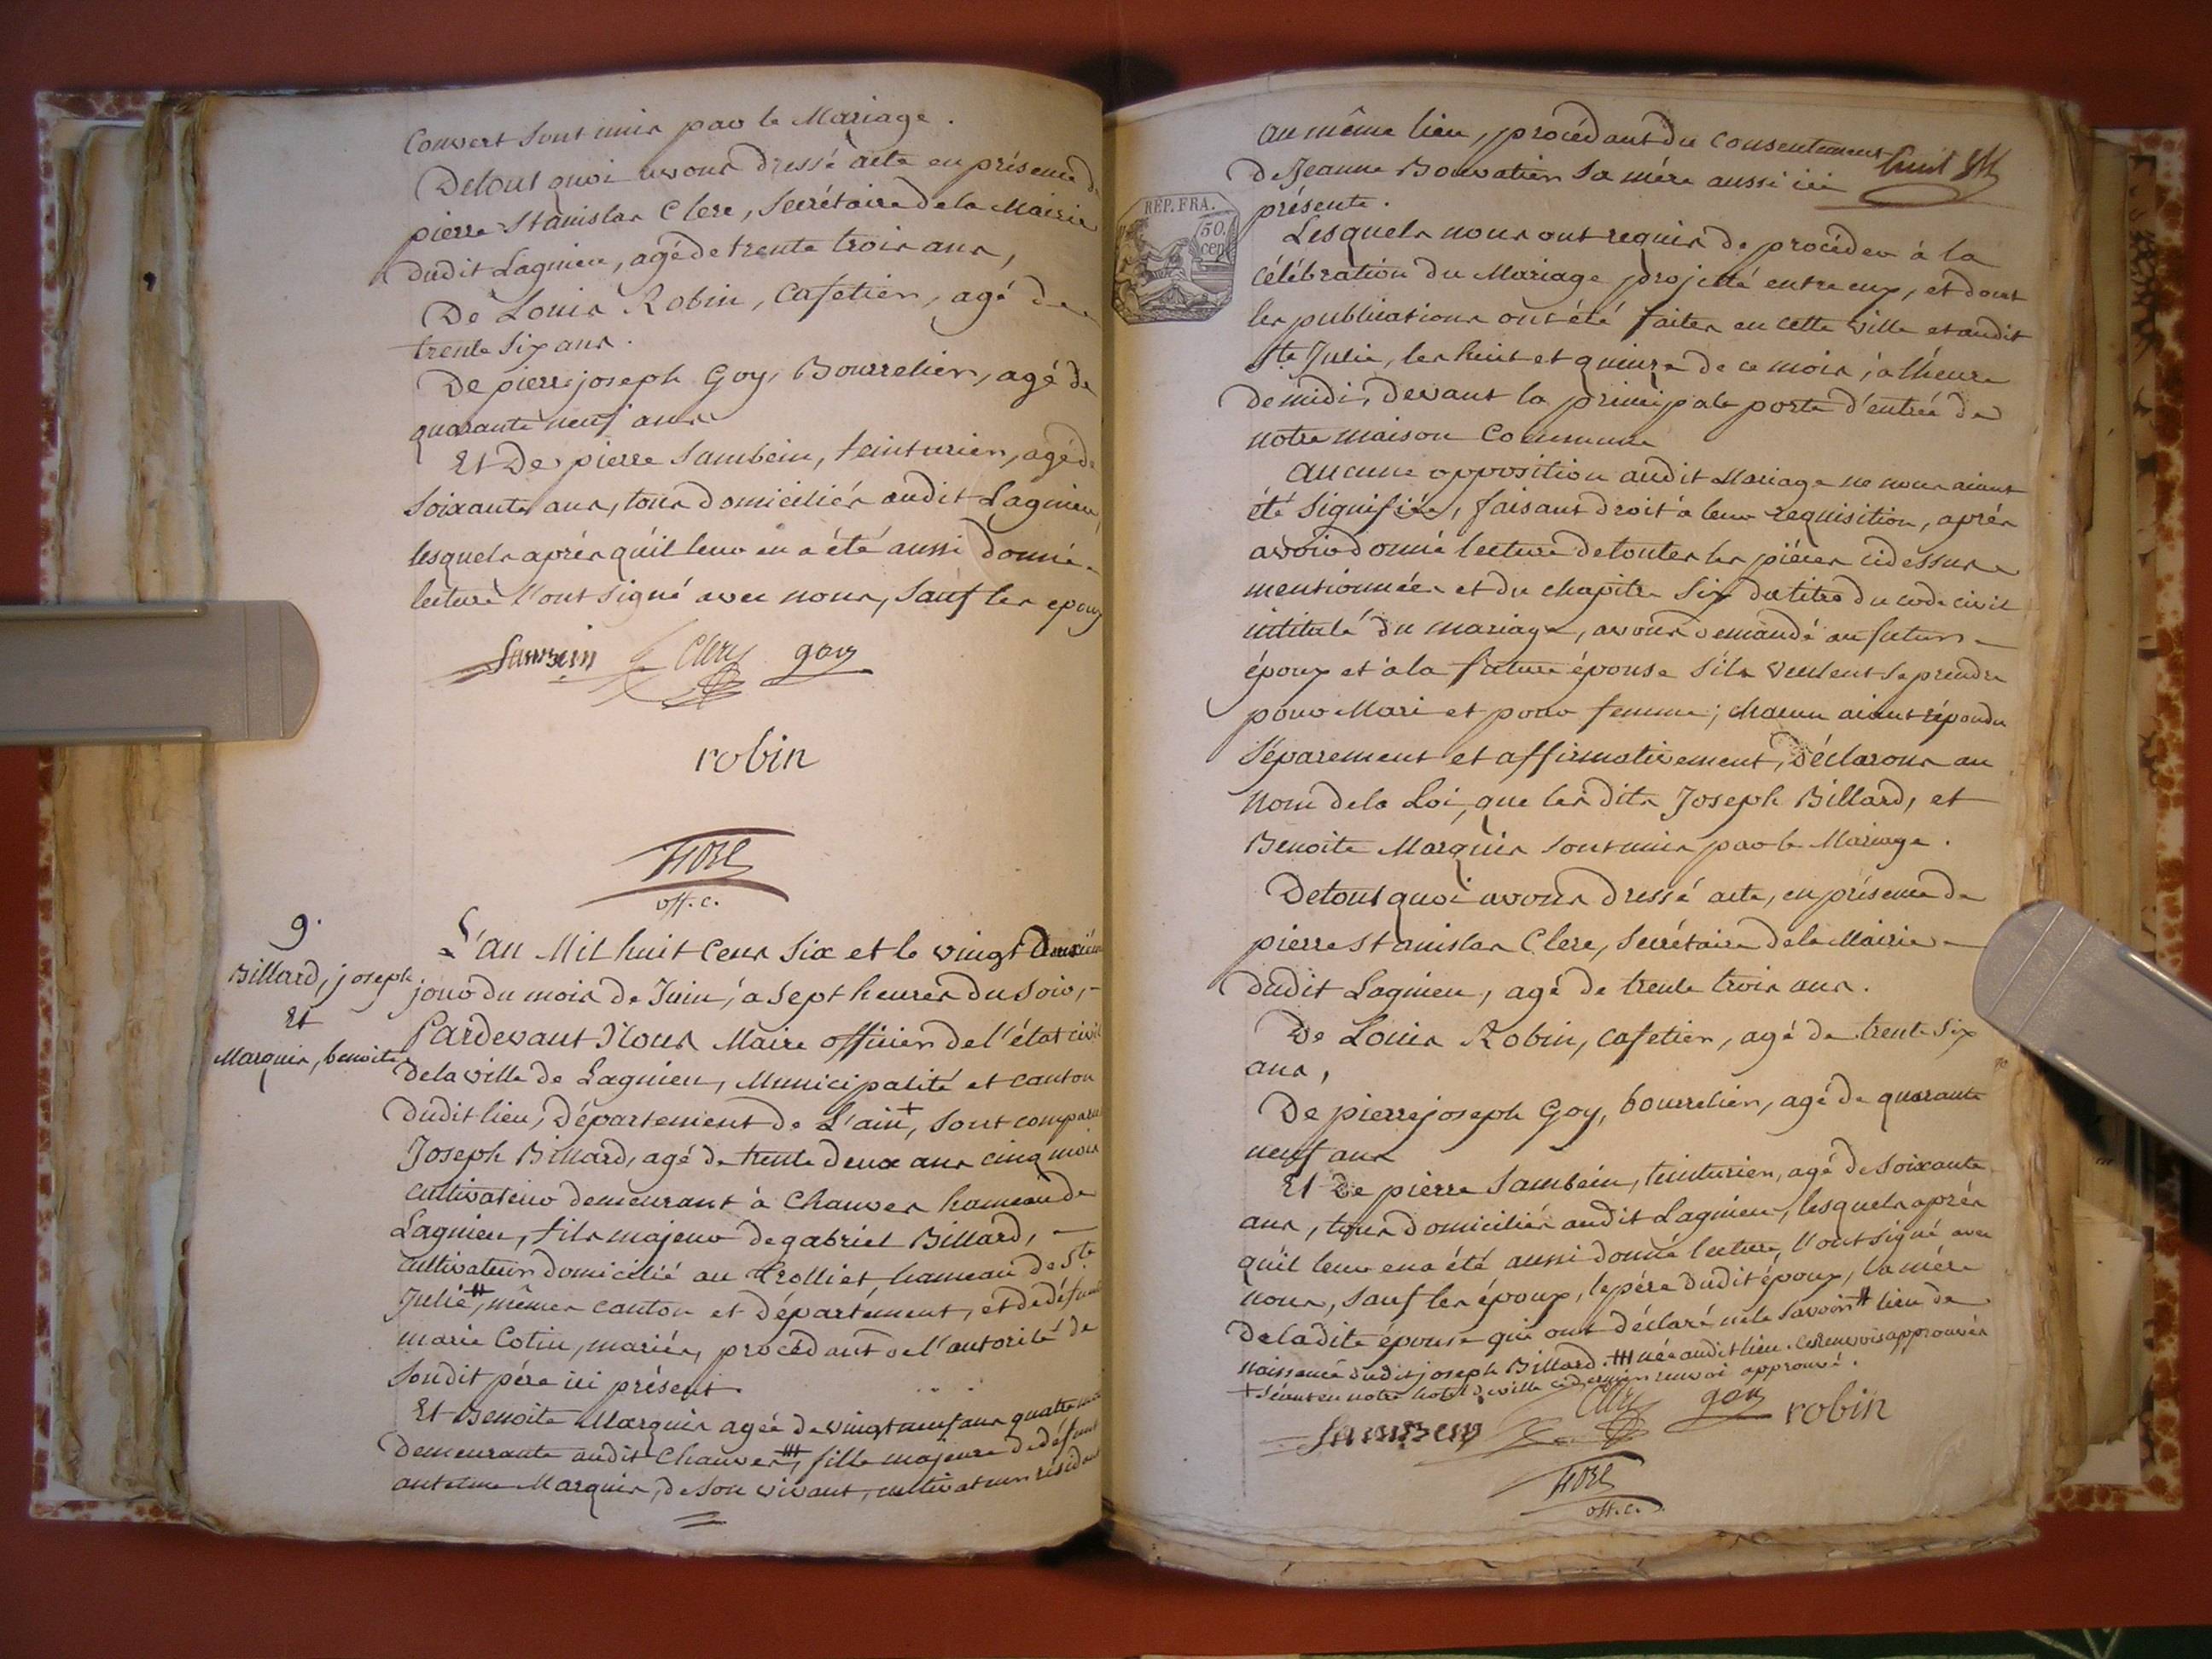 Convert sont unis par le Mariage.
De tout quoi avons dressé acte en présence de
pierre Stanislas Clerc, Secrétaire de la Mairie
dudit Lagnieu, agé de trente trois ans,
De Louis Robin, Cafetier, agé de
trente six ans.
De pierre joseph Goy, Bourrelier, agé de
quarante neuf ans
Et De pierre Sambein, teinturier, agé de
soixante ans, tous domiciliés audit Lagnieu,
lesquels après qu'il leur en a été aussi donné
lecture l'ont signé avec nous, sauf les epoux
Sambein Clerc goy
robin
off. c.
9.
Billard, joseph
Et
Marquis, benoite
L'an Mil huit Cens Six et le vingt deuxième
jour du mois de Juin, à sept heures du soir,
Pardevant Nous Maire officier de l'état civil
de la ville de Lagnieu, Municipalité et canton
dudit lieu, Département de L'ain +, sont comparu
Joseph Billard, agé de trente deux ans cinq mois
cultivateur demeurant à Chauves hameau de
Lagnieu, fils majeur de gabriel Billard,
cultivateur domicilié au trolliet hameau de Ste
Julie #, mêmes canton et département, et de défunte
marie Cotin, mariés, procédant de l'autorité de
Sondit père ici présent.
Et Benoite Marquis agée de vingt neuf ans quatre mois
demeurante audit Chauves #, fille majeure de défunt
antelme Marquis, de son vivant, cultivateur résidant
au même lieu, procédant du consentement
de Jeanne Bouvatier sa mère aussi ici
présente.
REP. FRA.
50.
cen
Lesquels nous ont requis de procéder à la
célébration du Mariage projetté entre eux, et dont
les publications ont été faites en cette ville et audit
Ste Julie, les huit et quinze de ce mois, à l'heure
de midi, devant la principale porte d'entrée de
notre maison Commune
Aucune opposition audit Mariage ne nous aiant
été signifiée, faisant droit à leur requisition, après
avoir donné lecture de toutes les pièces cidessus
mentionnées et du chapitre Six du titre du code civil
intitulé du mariage, avons demandé au futur
époux et à la future épouse s'ils veulent se prendre
pour Mari et pour femme; chacun aiant répondu
séparement et affirmativement, déclarons au
Nom de la Loi, que lesdits Joseph Billard, et
Benoite Marquis sont unis par le Mariage.
De tout quoi avons dressé acte, en présence de
pierre Stanislas Clerc, Secrétaire de la Mairie
dudit Lagnieu, agé de trente trois ans.
De Louis Robin, cafetier, agé de trente six
ans,
De pierre joseph Goy, bourrelier, agé de quarante
neuf ans
Et De pierre Sambein, teinturier, agé de soixante
ans, tous domiciliés audit Lagnieu, lesquels après
qu'il leur en a été aussi donné lecture, l'ont signé avec
nous, sauf les époux, le père dudit époux, la mère
de ladite épouse qui ont déclaré ne le savoir # lieu de
naissance dudit joseph Billard. # née audit lieu. Les renvois approuvés
+ Séant en notre hotel de ville ce dernier renvoi approuvé.
Sambein Clerc goy robin
off. c.